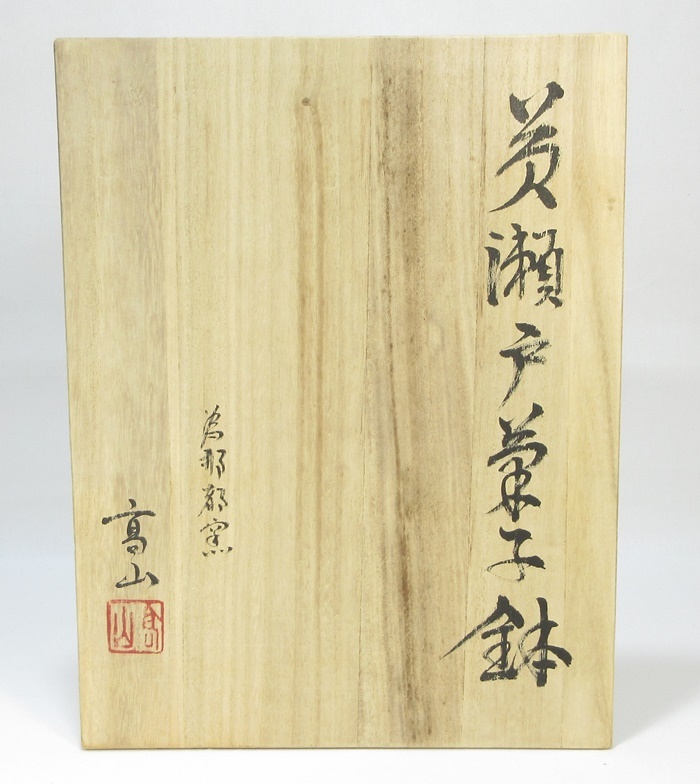 黄瀬戸菓子鉢
為那都窯
高山
高山